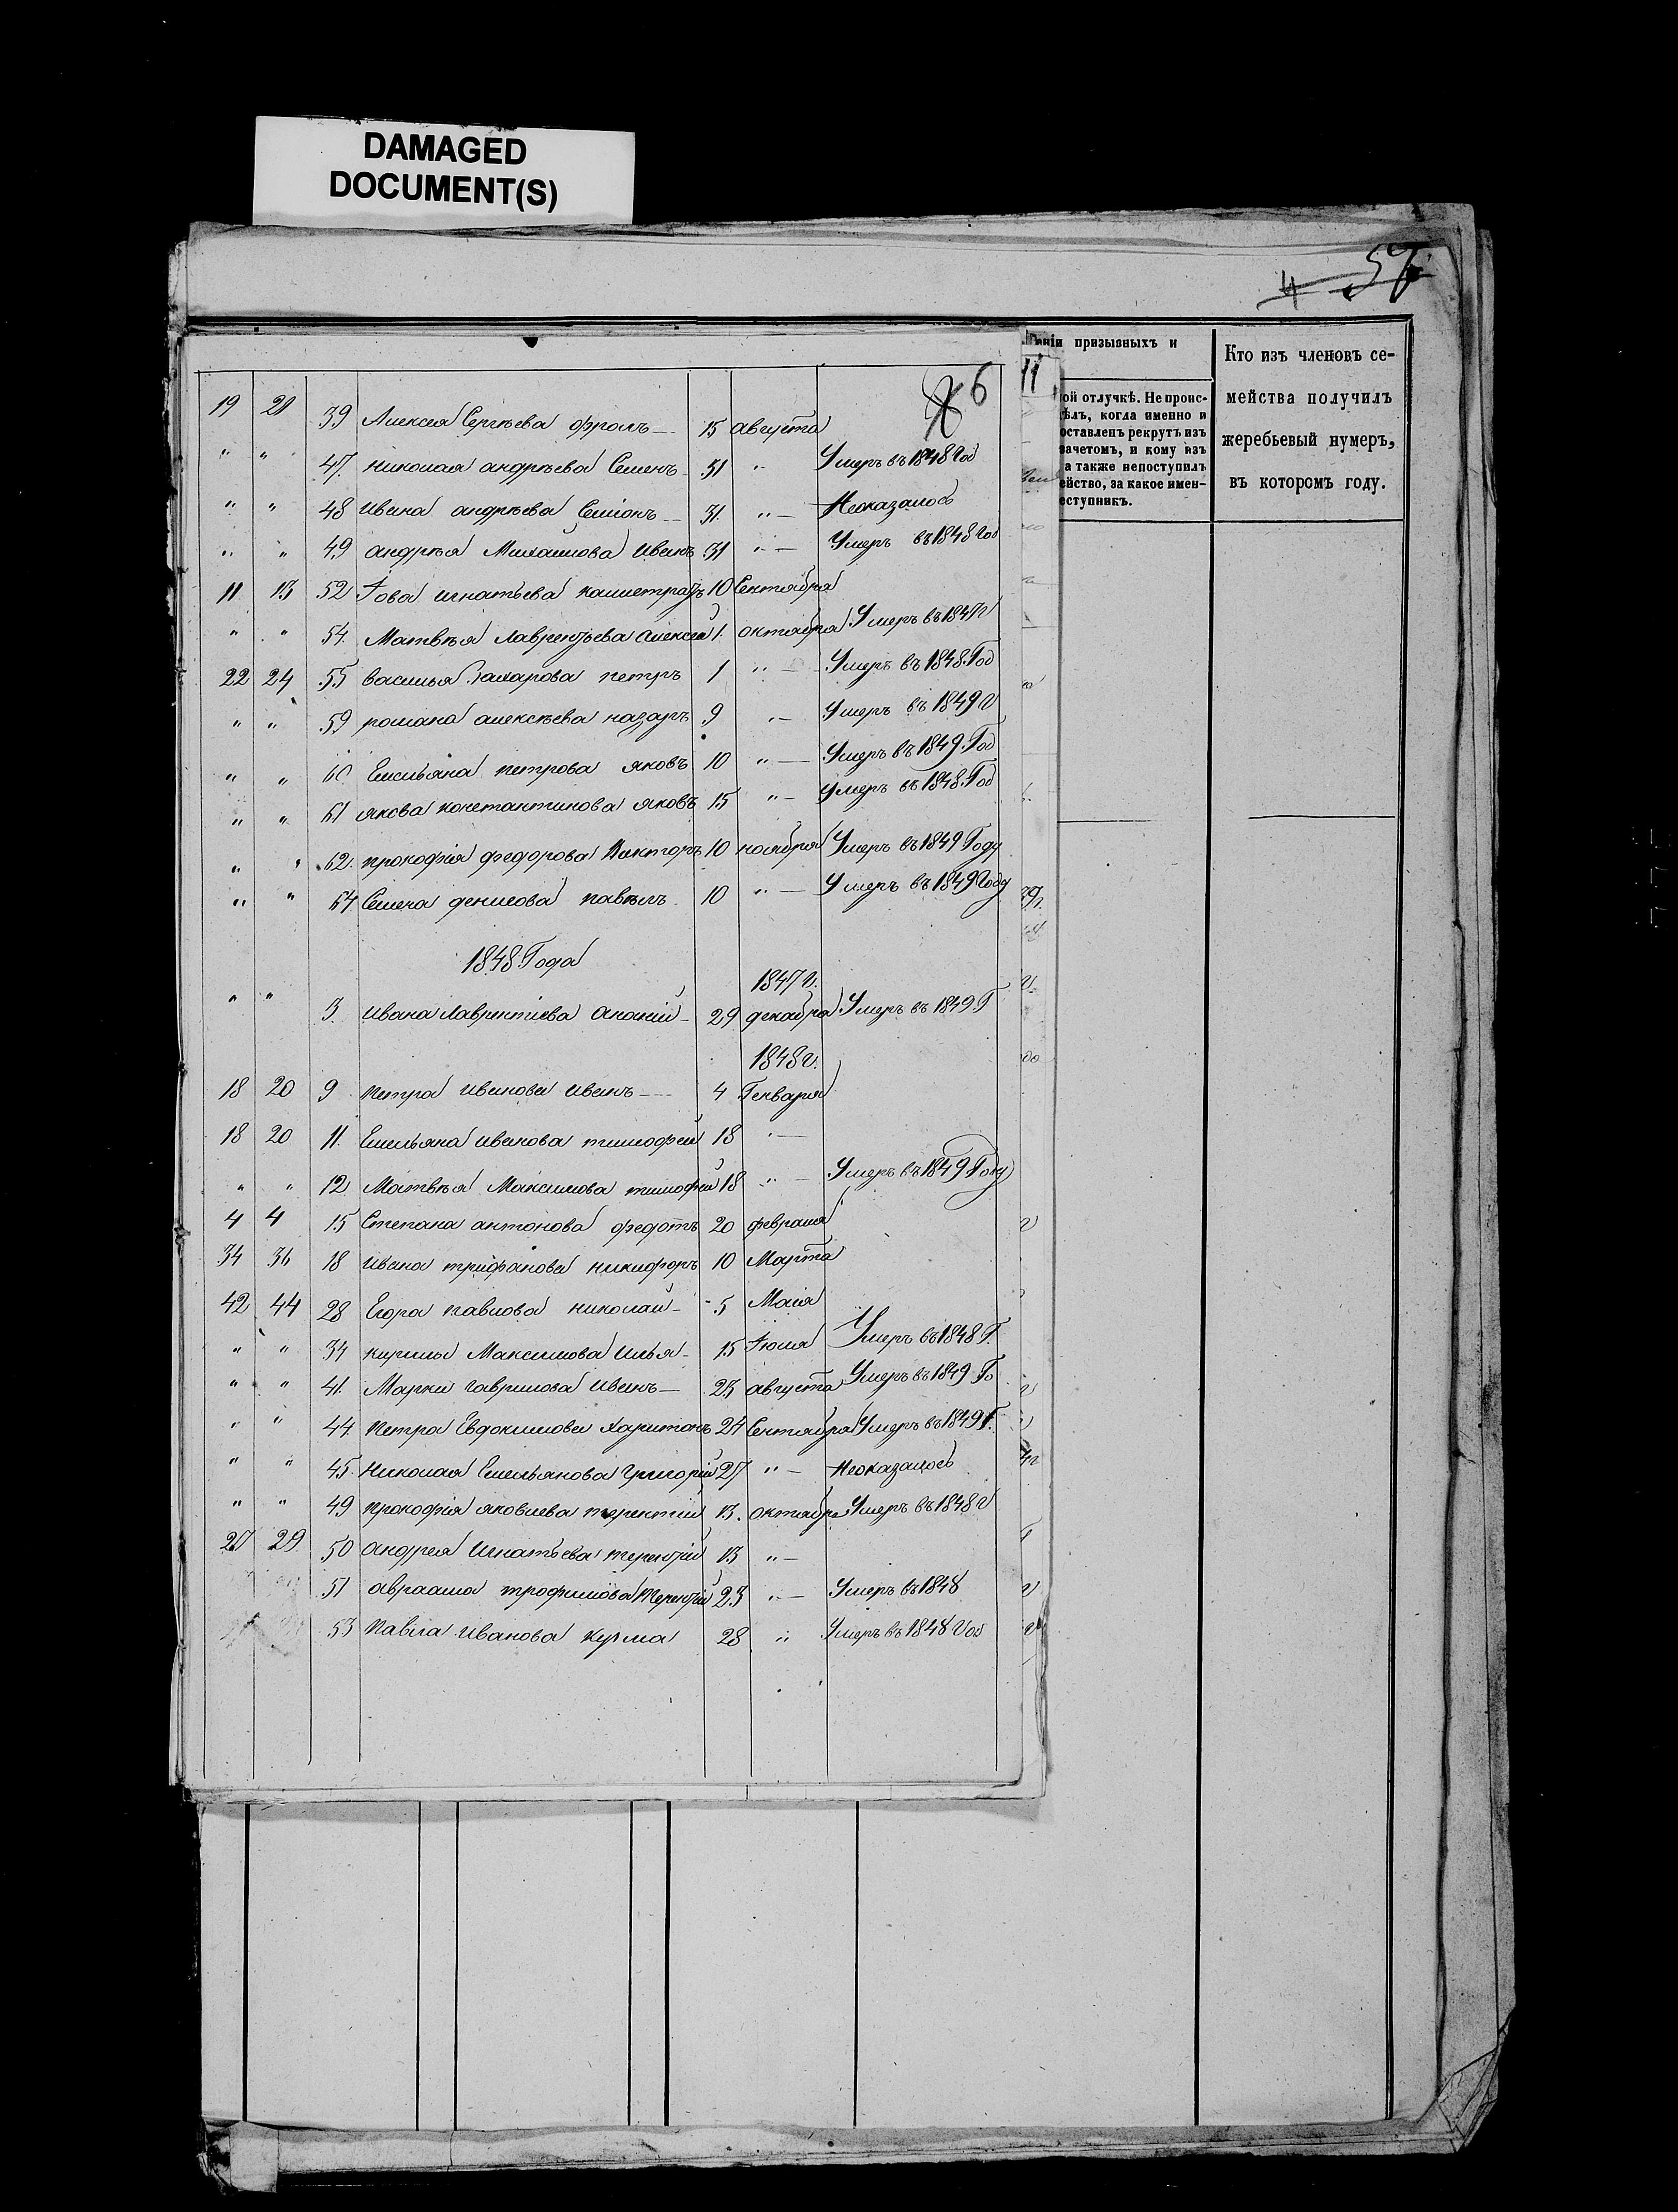 DAMAGED
DOCUMENT(S)
57
6
19 21 39 Алексея Сергѣева фролъ 15 августа
" " 47 николая андрѣева Семенъ 31 " Умеръ въ 1848 Год
" " 48 Ивана андрѣева Семіонъ 31 " Неоказалось
" " 49 андрѣя Михаилова Иванъ 31 " Умеръ въ 1848 год
11 13 52 Іова игнатьева калистратъ 10 Сентября
" " 54 Матвѣя Лаврентьева алексей 1 октября Умеръ въ 184
22 24 55 василья Захарова петръ 1 " Умеръ въ 1848 Год
" " 59 романа алексѣева назаръ 9 " Умеръ въ 1849 г
" " 60 Емельяна петрова яковъ 10 " Умеръ въ 1849 Год
" " 61 якова константинова яковъ 15 " умеръ въ 1848 Год
" " 62 прокофія федорова Викторъ 10 ноября Умеръ въ 1849 Году
" " 64 Семена денисова павелъ 10 " Умеръ въ 1849 Году
1848 Года
1847 г.
" " 3 Ивана Лаврентіева ананій 29 декабря Умеръ въ 1849 Г
1848 г.
18 20 9 петра Иванова Иванъ 4 Генваря
18 20 11 Емельяна Иванова тимофей 18 "
" " 12 Матвѣя Максимова тимофей 18 " Умеръ въ 1849 Году
4 4 15 Степана антонова федотъ 20 февраля
34 36 18 Ивана трифанова никифоръ 10 Марта
42 44 28 Егора павлова николай 5 Маія
" " 34 кирилы Максимова Илья 15 Іюля Умеръ въ 1848 Г.
" " 41 Марки гаврилова Иванъ 23 августа Умеръ въ 1849 Го
" " 44 петра Евдокимова Харитонъ 24 Сентября Умеръ въ 1849 Г.
" " 45 Николая Емельянова Григорій 27 " Неоказалось
" " 49 прокофія яковлева терентій 13 октября Умеръ въ 1848 г
27 29 50 андрея Игнатьева терентій 13 "
51 авраама трофимова терентій 23 " Умеръ въ 1848
53 павла Иванова Кузма 28 " Умеръ въ 1848 Год
11
аніи призывныхъ и
ой отлучкѣ. Не проис-
ѣлъ, когда именно и
оставленъ рекрутъ изъ
зачетомъ, и кому изъ
а также непоступилъ
ейство, за какое имен-
еступникъ.
Кто изъ членовъ се-
мейства получилъ
жеребьевый нумеръ,
въ которомъ году.